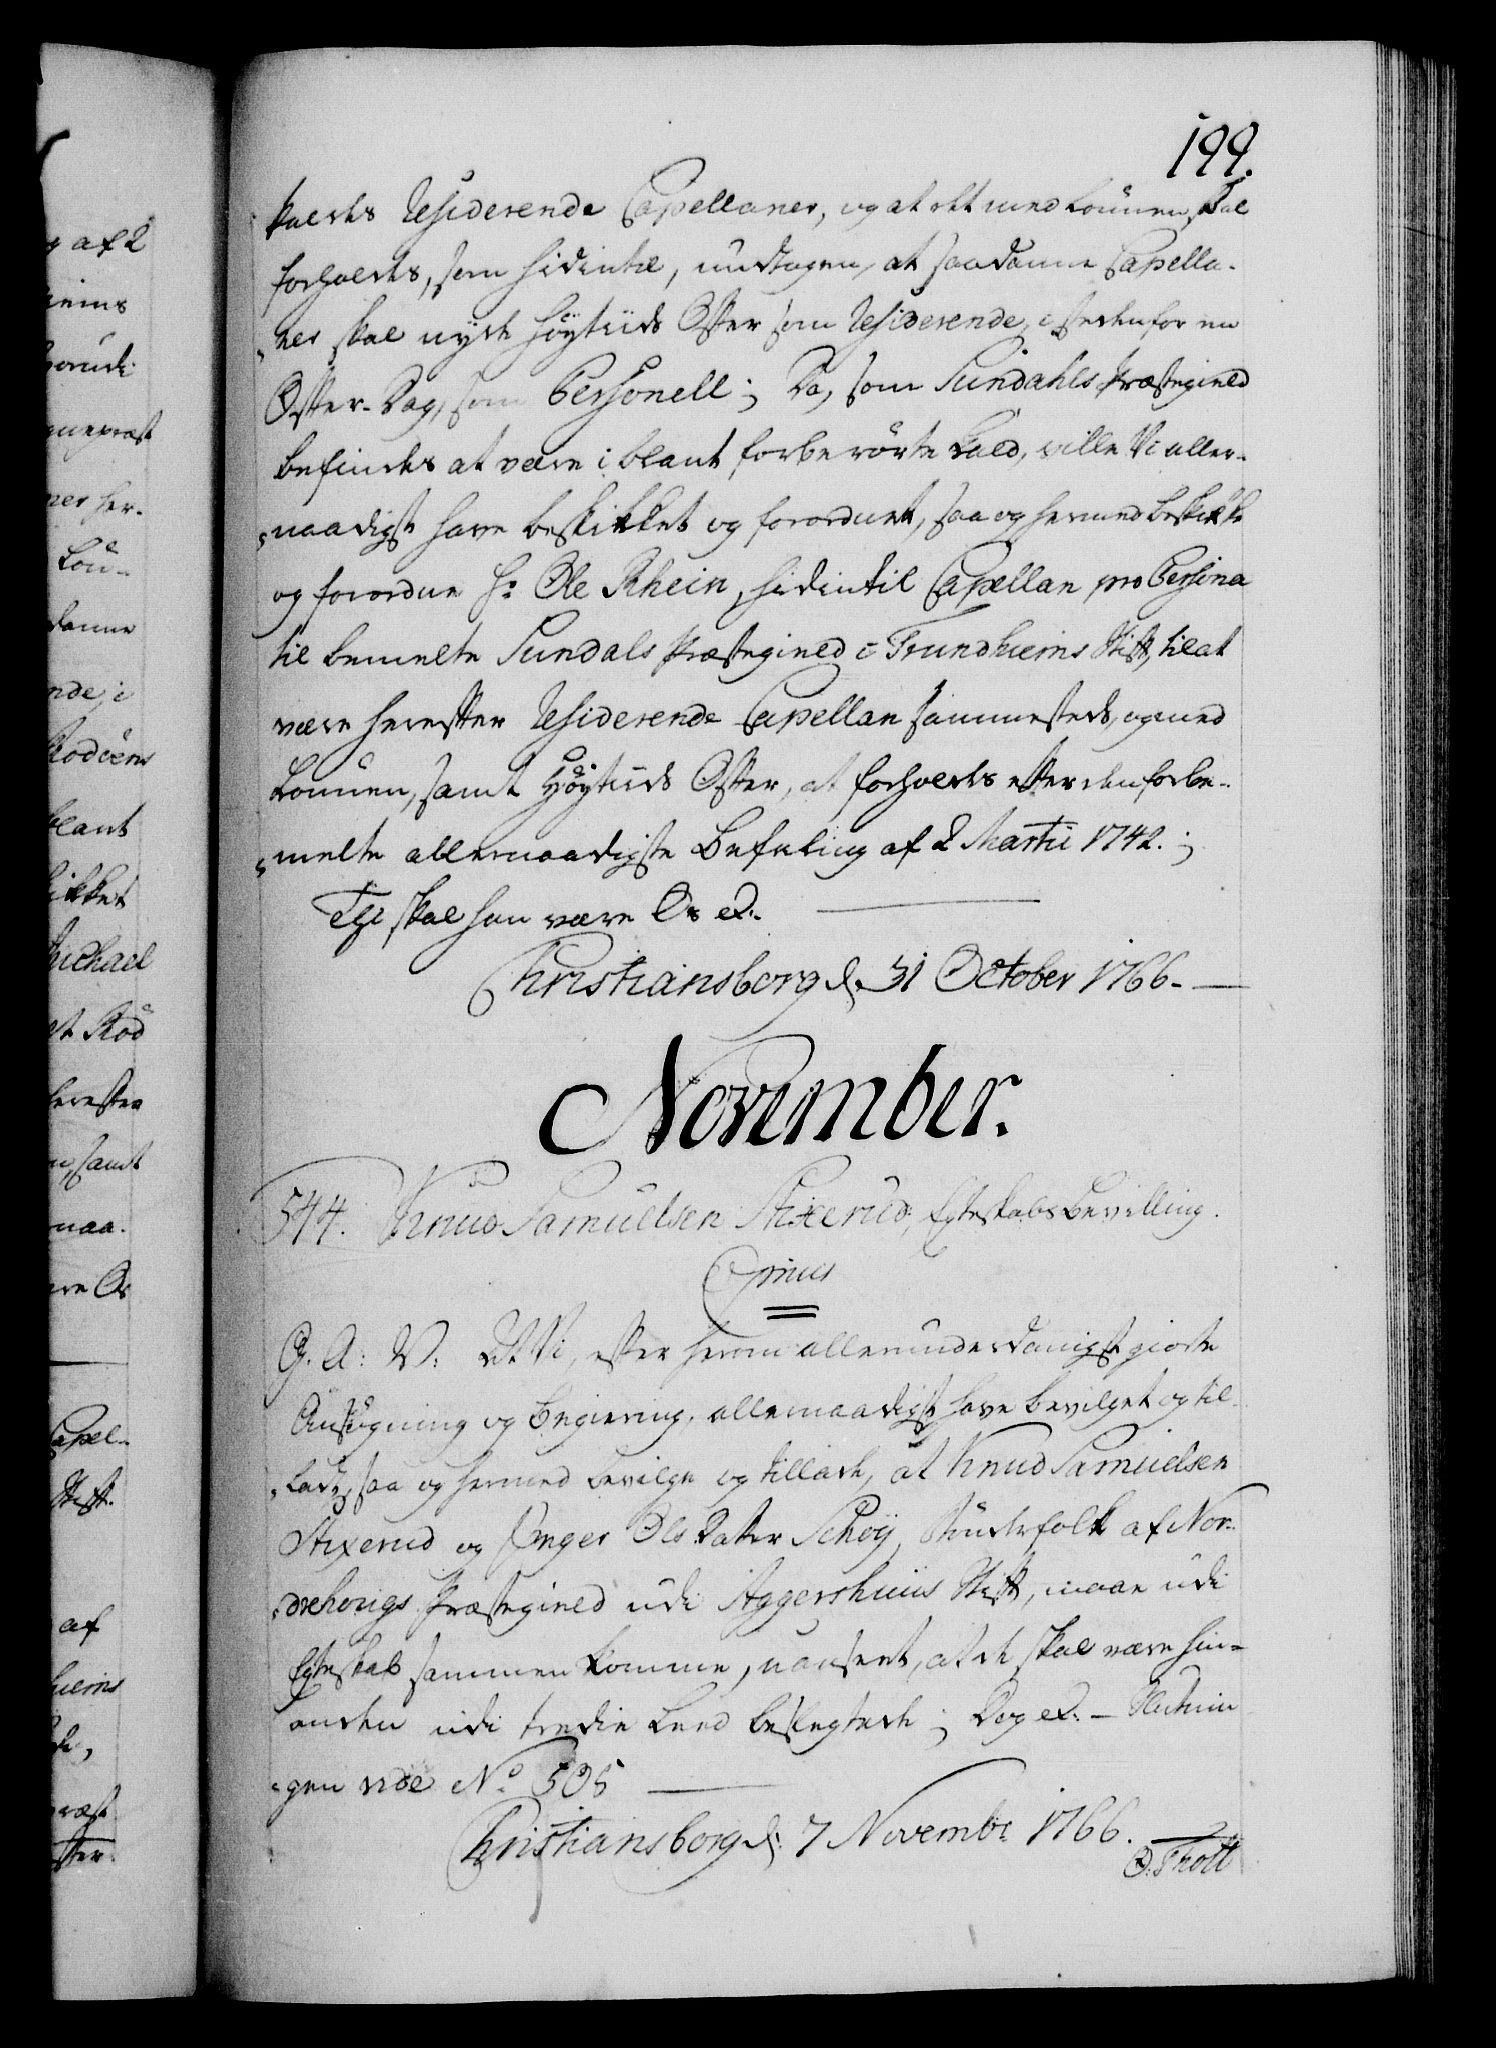 199.
kaldes Residerende Capellaner, og at det med Lönnen skal
forholdes, som hidintil, undtagen, at saadanne Capella-
ner skal nyde Höytiids Offer som Residerende, i steden for en
Offer-Dag, som Personell; Da, som Sundahls Præstegield
befindes at være i blant forberörte Kald, ville Vi aller-
naadigst have beskikket og forordnet, saa og hermed beskikke
og forordne Hr. Ole Rhein, hidintil Capellan pro Persona
til bemelte Sundals Præstegield i Trundhiems Stift, til at
være herefter Residerende Capellan sammesteds, og med
Lönnen, samt Höytiids Offer, at forholdes efter den forbe-
melte allernaadigste Befaling af 2 Martii 1742.;
Thi skal han være Os ec.
Christiansborg d. 31 October 1766.
November.
544. Knud Samuelsen Stixerud, Egteskabs Bevilling.
Gratis
G. A: V: At Vi, efter herom allerunderdanigst giorte
Ansögning og Begiering, allernaadigst have bevilget og til-
ladt, saa og hermed bevilge og tillade, at Knud Samuelsen
Stixerud og Inger Ols Datter Schöy, Bündefolk af Nor-
drehougs Præstegield udi Aggershuus Stift, maae udi
Egteskab sammen komme, uanseet, at de skal være hin-
anden udi tredie Leed beslegtede; Dog ec. - Slutnin
gen vide No. 505
Christiansborg d. 7 Novembr. 1766.
O. Thott
af 2
Michael
samt
Capel-
Stift.
af